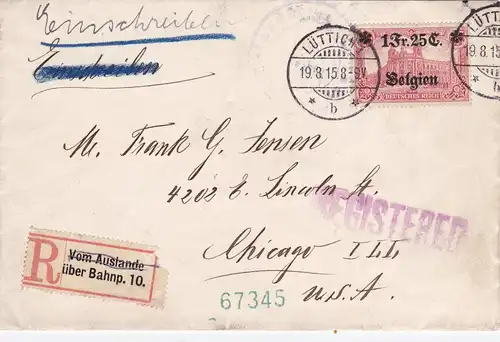 Einschreiben
Einschreiben
LÜTTICH
19.8.15.8-9V.
* b *
1Fr.25C.
Belgien
DEUTSCHES REICH
LÜTTICH
19.8.15
* b
Mr. Frank G. Jensen
4202 E. Lincoln St.
REGISTERED
Chicago Ill
U.S.A.
R
Vom Auslande
über Bahnp. 10.
67345